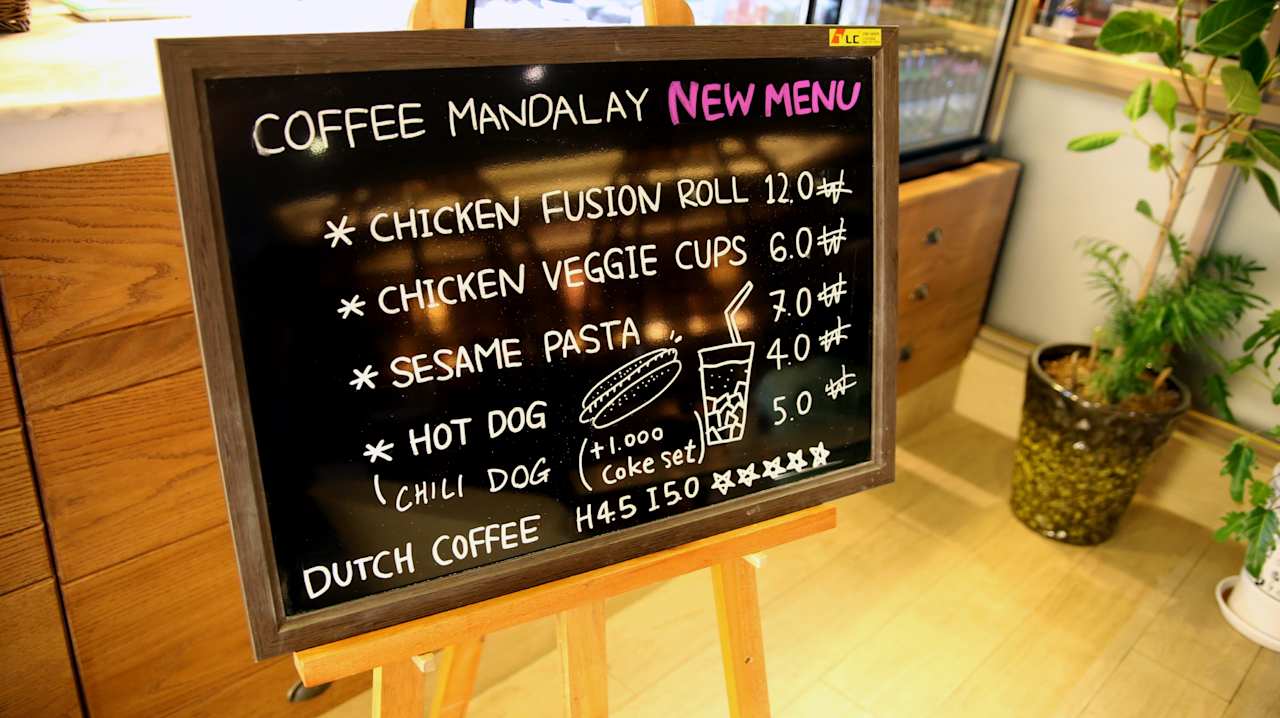 LC
COFFEE MANDALAY NEW MENU
* CHICKEN FUSION ROLL 12.0₩
* CHICKEN VEGGIE CUPS 6.0₩
* SESAME PASTA 7.0₩
* HOT DOG 4.0₩
CHILI DOG (+1.000 Coke set) 5.0₩
DUTCH COFFEE H4.5 I5.0 ☆☆☆☆☆